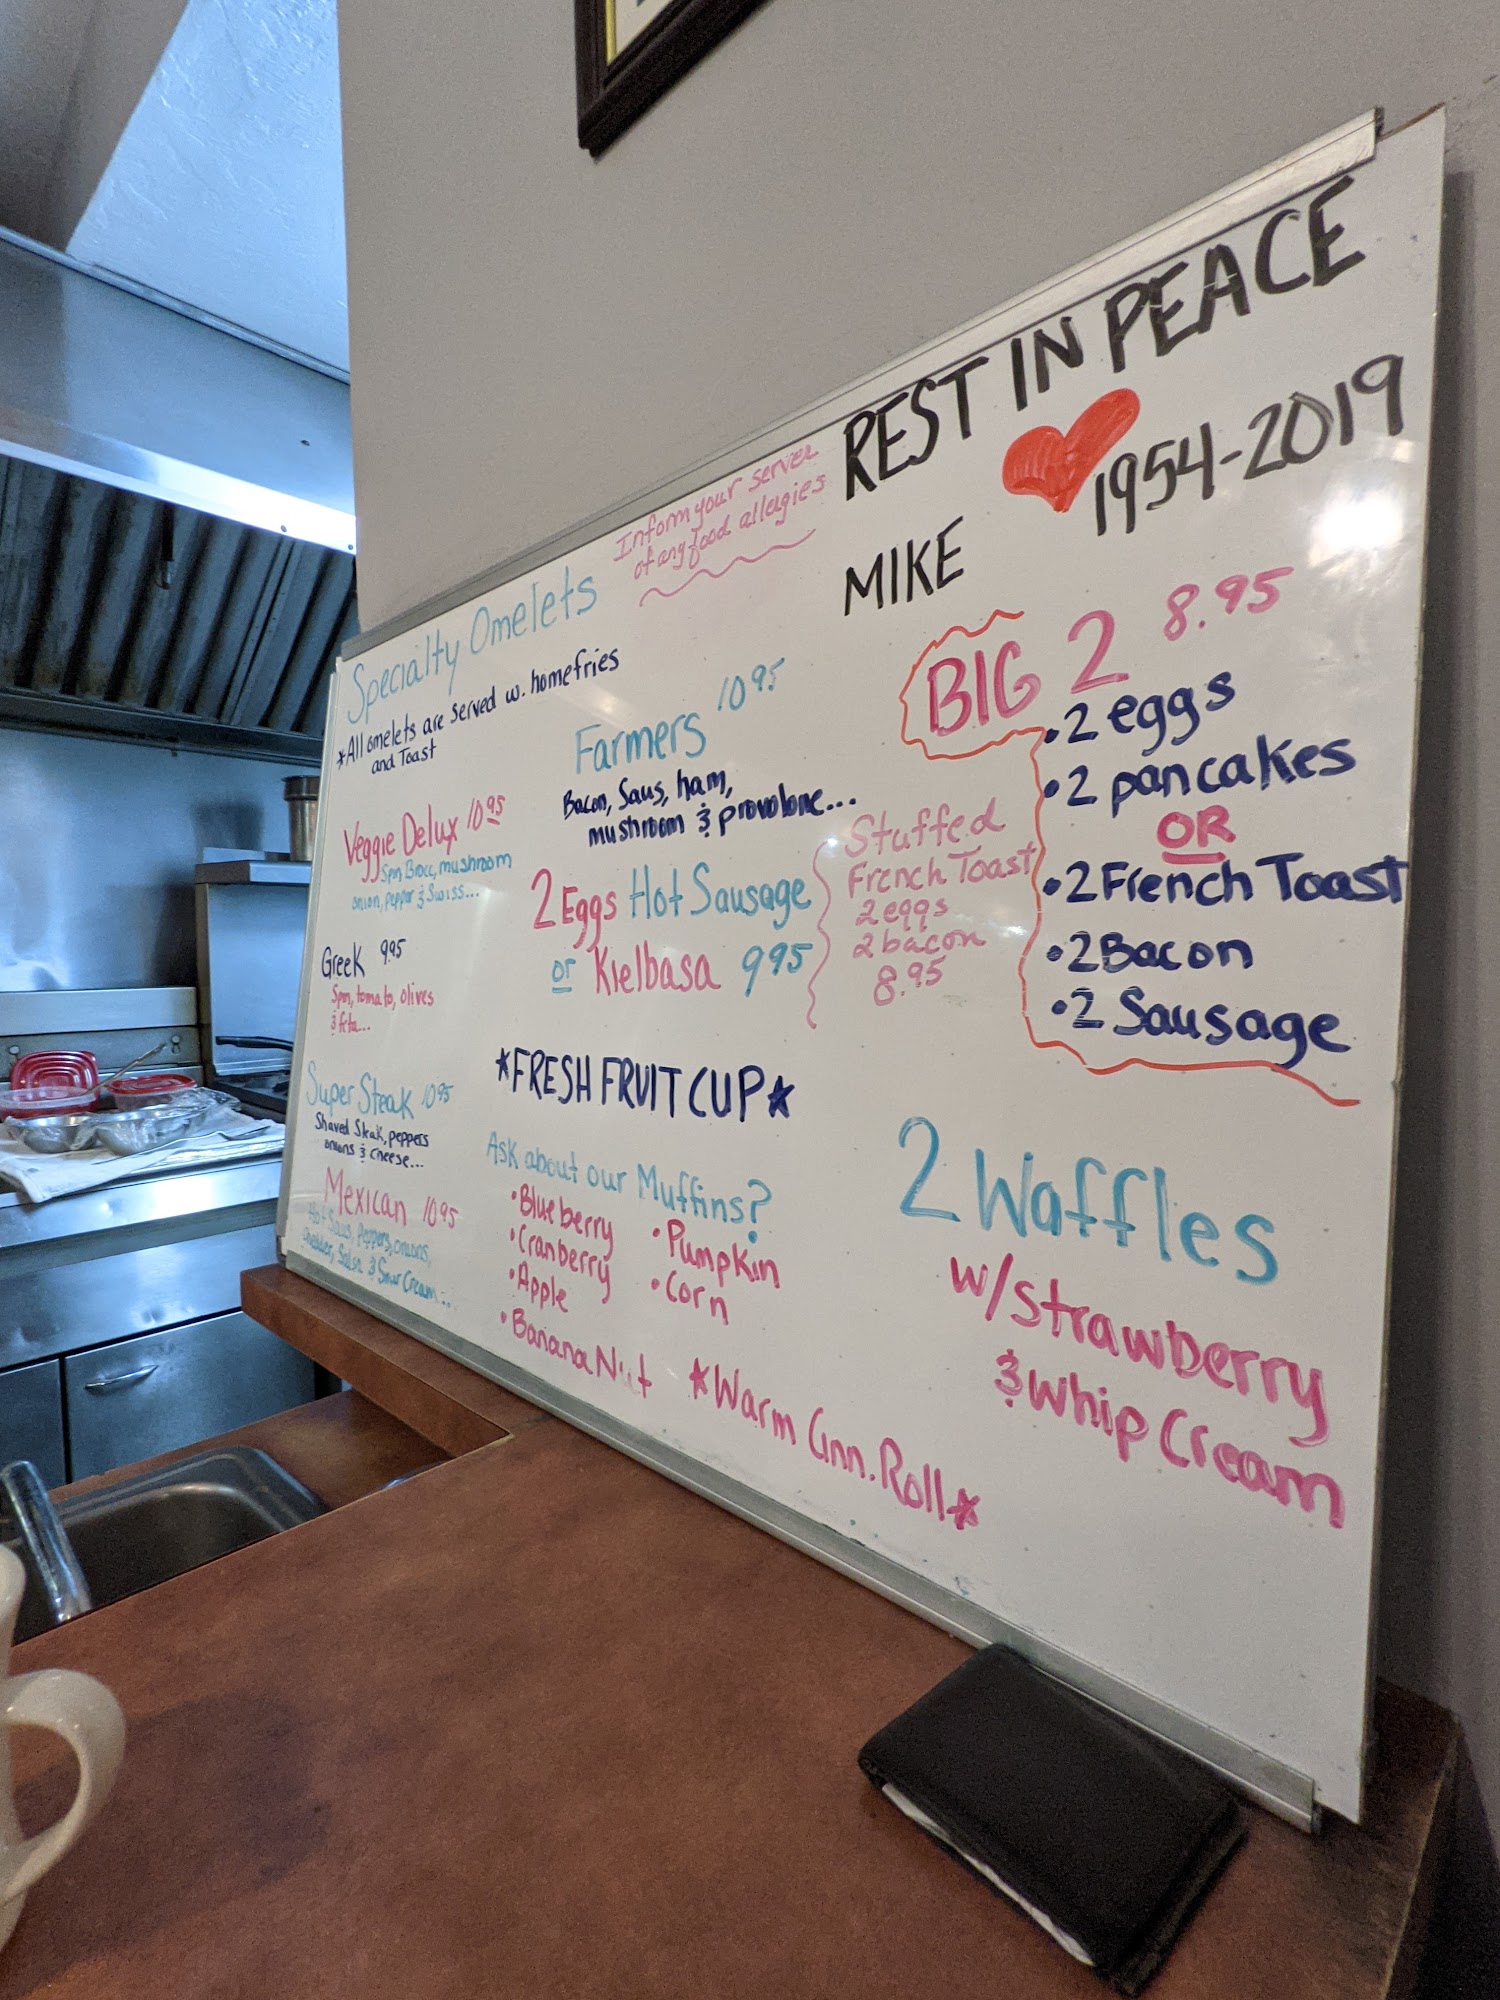 REST IN PEACE
1954-2019
MIKE
Inform your server
of any food allergies
Specialty Omelets
*All omelets are served w. homefries
and Toast
Veggie Delux 10 95
Spin, Brocc, mushroom
onion, pepper & Swiss...
Greek 9.95
Spin, tomato, olives
& feta...
Super Steak 10 95
Shaved Steak, peppers
onions & cheese...
Mexican 10 95
Hot Saus, Peppers, onions,
Cheddar, Salsa & Sour Cream...
Farmers 10 95
Bacon, Saus, ham,
mushroom & provolone...
2 Eggs Hot Sausage
or Kielbasa 9 95
*FRESH FRUIT CUP*
Ask about our Muffins?
•Blueberry
•Cranberry
•Apple
•Banana Nut
•Pumpkin
•Corn
*Warm Cinn. Roll*
Stuffed
French Toast
2 eggs
2 bacon
8.95
BIG 2 8.95
•2 eggs
•2 pancakes
OR
•2 French Toast
•2 Bacon
•2 Sausage
2 Waffles
w/strawberry
& Whip Cream